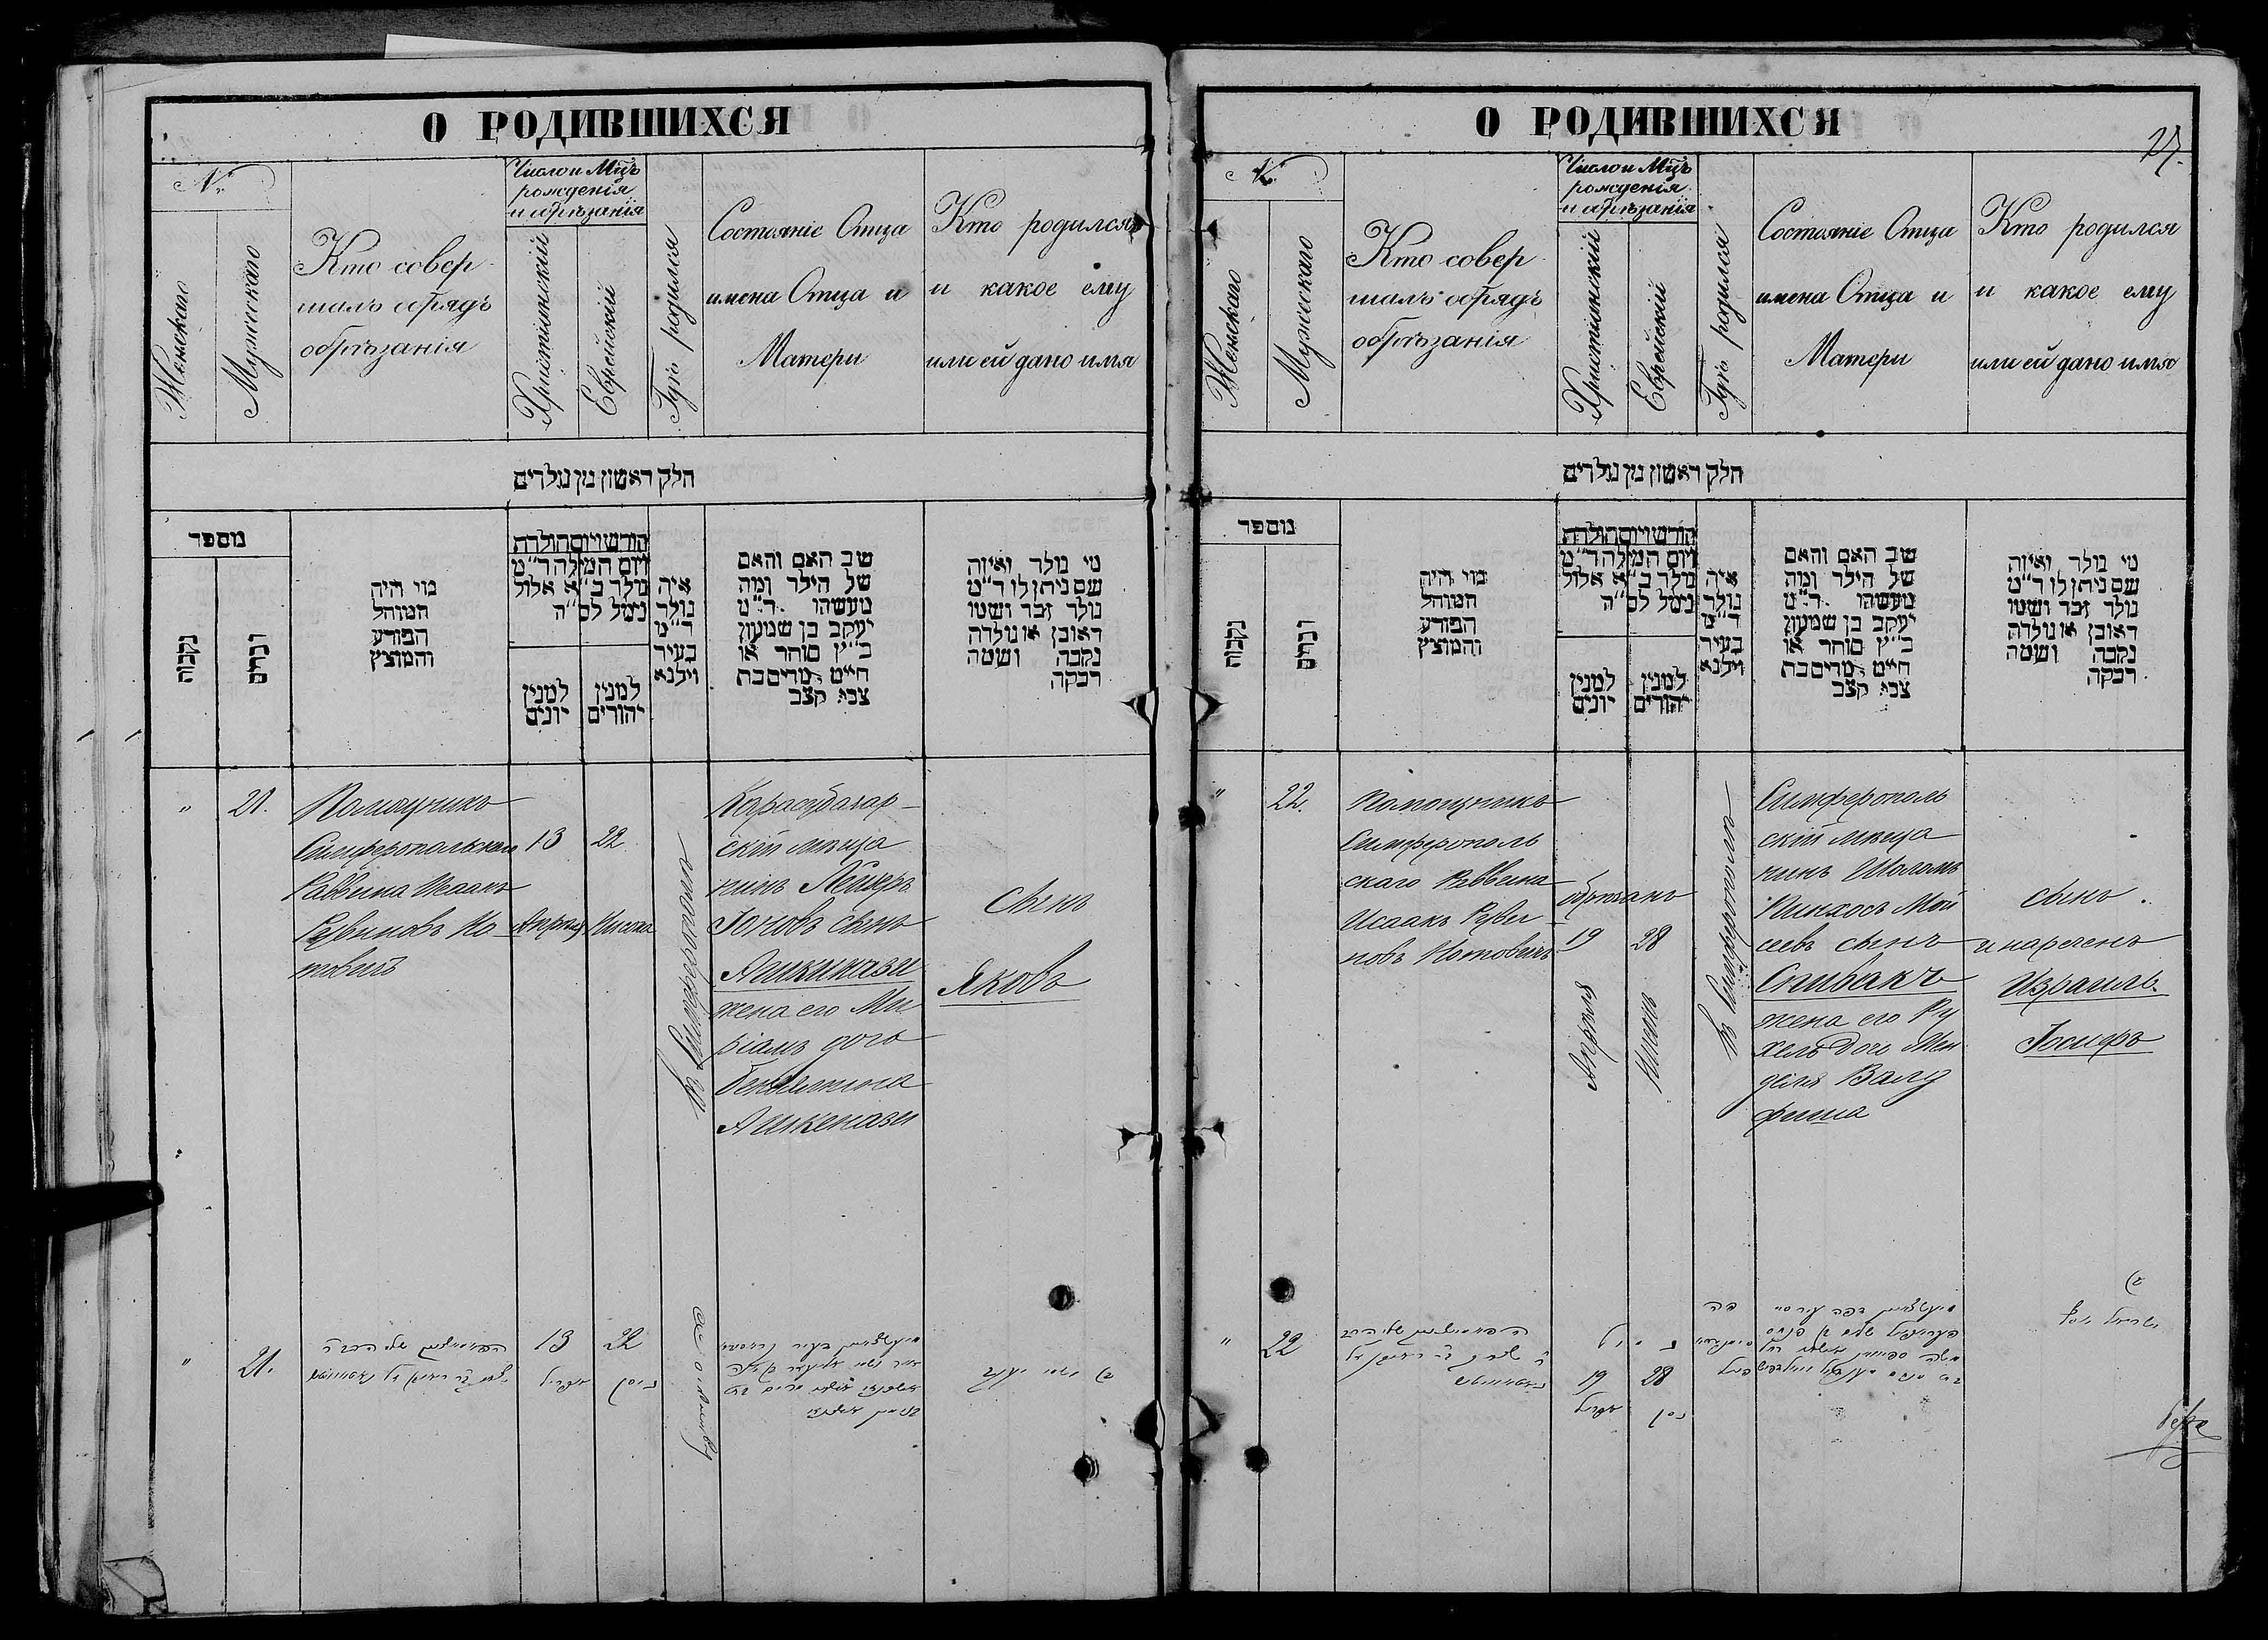 О РОДИВШИХСЯ
№
Женскаго
Мужескаго
Кто совер
шалъ обрядъ
обрѣзанія
Число и Мцъ
рожденія
и обрѣзанія
Христіянскій
Еврейскій
Гдѣ родился
Состояніе Отца
имена Отца и
Матери
Кто родился
и какое ему
или ей дано имя
חלק ראשון מן נולדים
מספר
נקבות
זכרים
מי היה
המוהל
הפורע
והמוצץ
חודש ויום הולדת
ויום המילה ד״מ
נולד ב״א אלול
נימל לס״ה
למנין
יונים
למנין
יהודים
איה
נולד
ד״מ
בעיר
וילנא
שב האם והאם
של הילד ומה
מעשהו ד״מ
יעקב בן שמעון
כ״ץ סוחר או
חייט מרים בת
צבי קצב
מי נולד ואיזה
שם ניתן לו ד״מ
נולד זכר ושמו
ראובן או נולדה
נקבה ושמה
רבקה
" 21.
Помощникъ
Симферопольскаго
Раввина Исаакъ
Рувиновъ Но
товичъ
13 22
Апрѣля Нисона
въ Симферополѣ
Карасубазар
скій мѣща
нинъ
Іоновъ сынъ
Ашкинази
жена его Ми
ріамъ дочь
Беньямина
Ашкенази
Сынъ
Яковъ
" 21.
13 אפריל
22 ניסן
О РОДИВШИХСЯ
27.
№
Женскаго
Мужескаго
Кто совер
шалъ обрядъ
обрѣзанія
Число и Мцъ
рожденія
и обрѣзанія
Христіянскій
Еврейскій
Гдѣ родился
Состояніе Отца
имена Отца и
Матери
Кто родился
и какое ему
или ей дано имя
חלק ראשון מן נולדים
מספר
נקבות
זכרים
מי היה
המוהל
הפורע
והמוצץ
חודש ויום הולדת
ויום המילה ד״מ
נולד ב״א אלול
נימל לס״ה
למנין
יונים
למנין
יהודים
איה
נולד
ד״מ
בעיר
וילנא
שב האם והאם
של הילד ומה
מעשהו ד״מ
יעקב בן שמעון
כ״ץ סוחר או
חייט מרים בת
צבי קצב
מי נולד ואיזה
שם ניתן לו ד״מ
נולד זכר ושמו
ראובן או נולדה
נקבה ושמה
רבקה
" 22.
Помощникъ
Симферополь
скаго Раввина
Исаакъ Руви
новъ Нотовичъ
обрѣзанъ
19 28
Апрѣля
Нисонъ
въ Симферополѣ
Симферополь
скій мѣща
нинъ Шоломъ
Пинхосъ Мой
сеевъ сынъ
Спивакъ
жена его Ру
хель дочь Мен
деля
сынъ
и нареченъ
Израиль
Іосифъ
" 22
19 אפריל
28 ניסן
ישראל יוסף